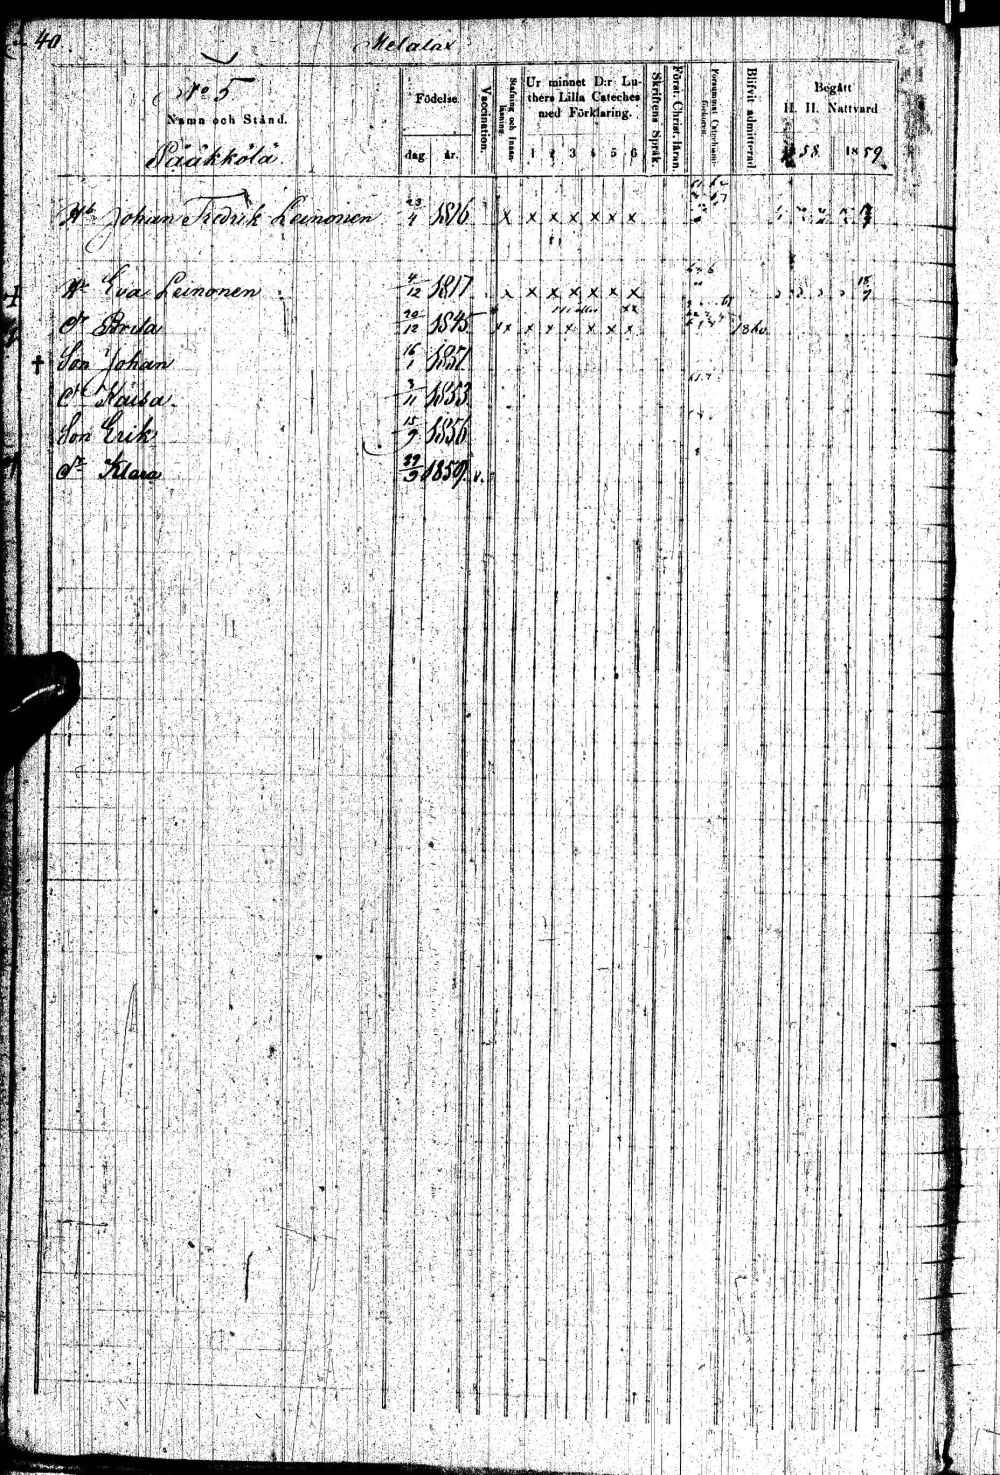 40
Melalax
No 5
Namn och Stånd.
Pääkkölä.
Födelse.
dag. år.
Vaccination.
Stafning och Innanläsning.
Ur minnet D:r Luthers Lilla Cateches med Förklaring.
1 2 3 4 5 6
Skriftens Språk.
Först. Christ. läran.
Blifvit admitterad.
Begått
H. H. Nattvard
1858. 1859.
Hb Johan Fredrik Leinonen 23/4 1816 x x x x x x x
Hr Eva Leinonen 4/12 1817 x x x x x x x
Dr Brita 20/12 1845 x x x x x x x x 1860
† Son Johan 16/1 1851
Dr Kaisa 3/11 1853
Son Erik 15/9 1856
Dr Klara 1859 v.